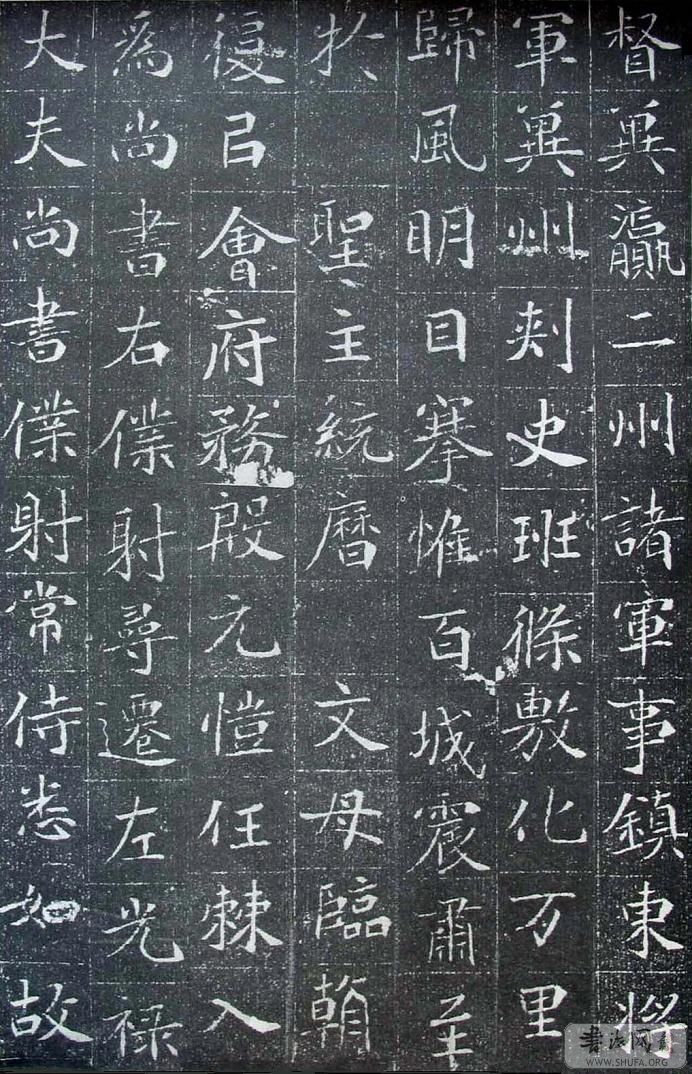 督冀瀛二州諸軍事鎮東將
軍冀州刺史班條敷化万里
歸風明目搴惟百城震肅至
於聖主統曆文母臨朝
復以會府務殷元愷任棘入
為尚書右僕射尋遷左光祿
大夫尚書僕射常侍悉如故
書法网
WWW.SHUFA.ORG